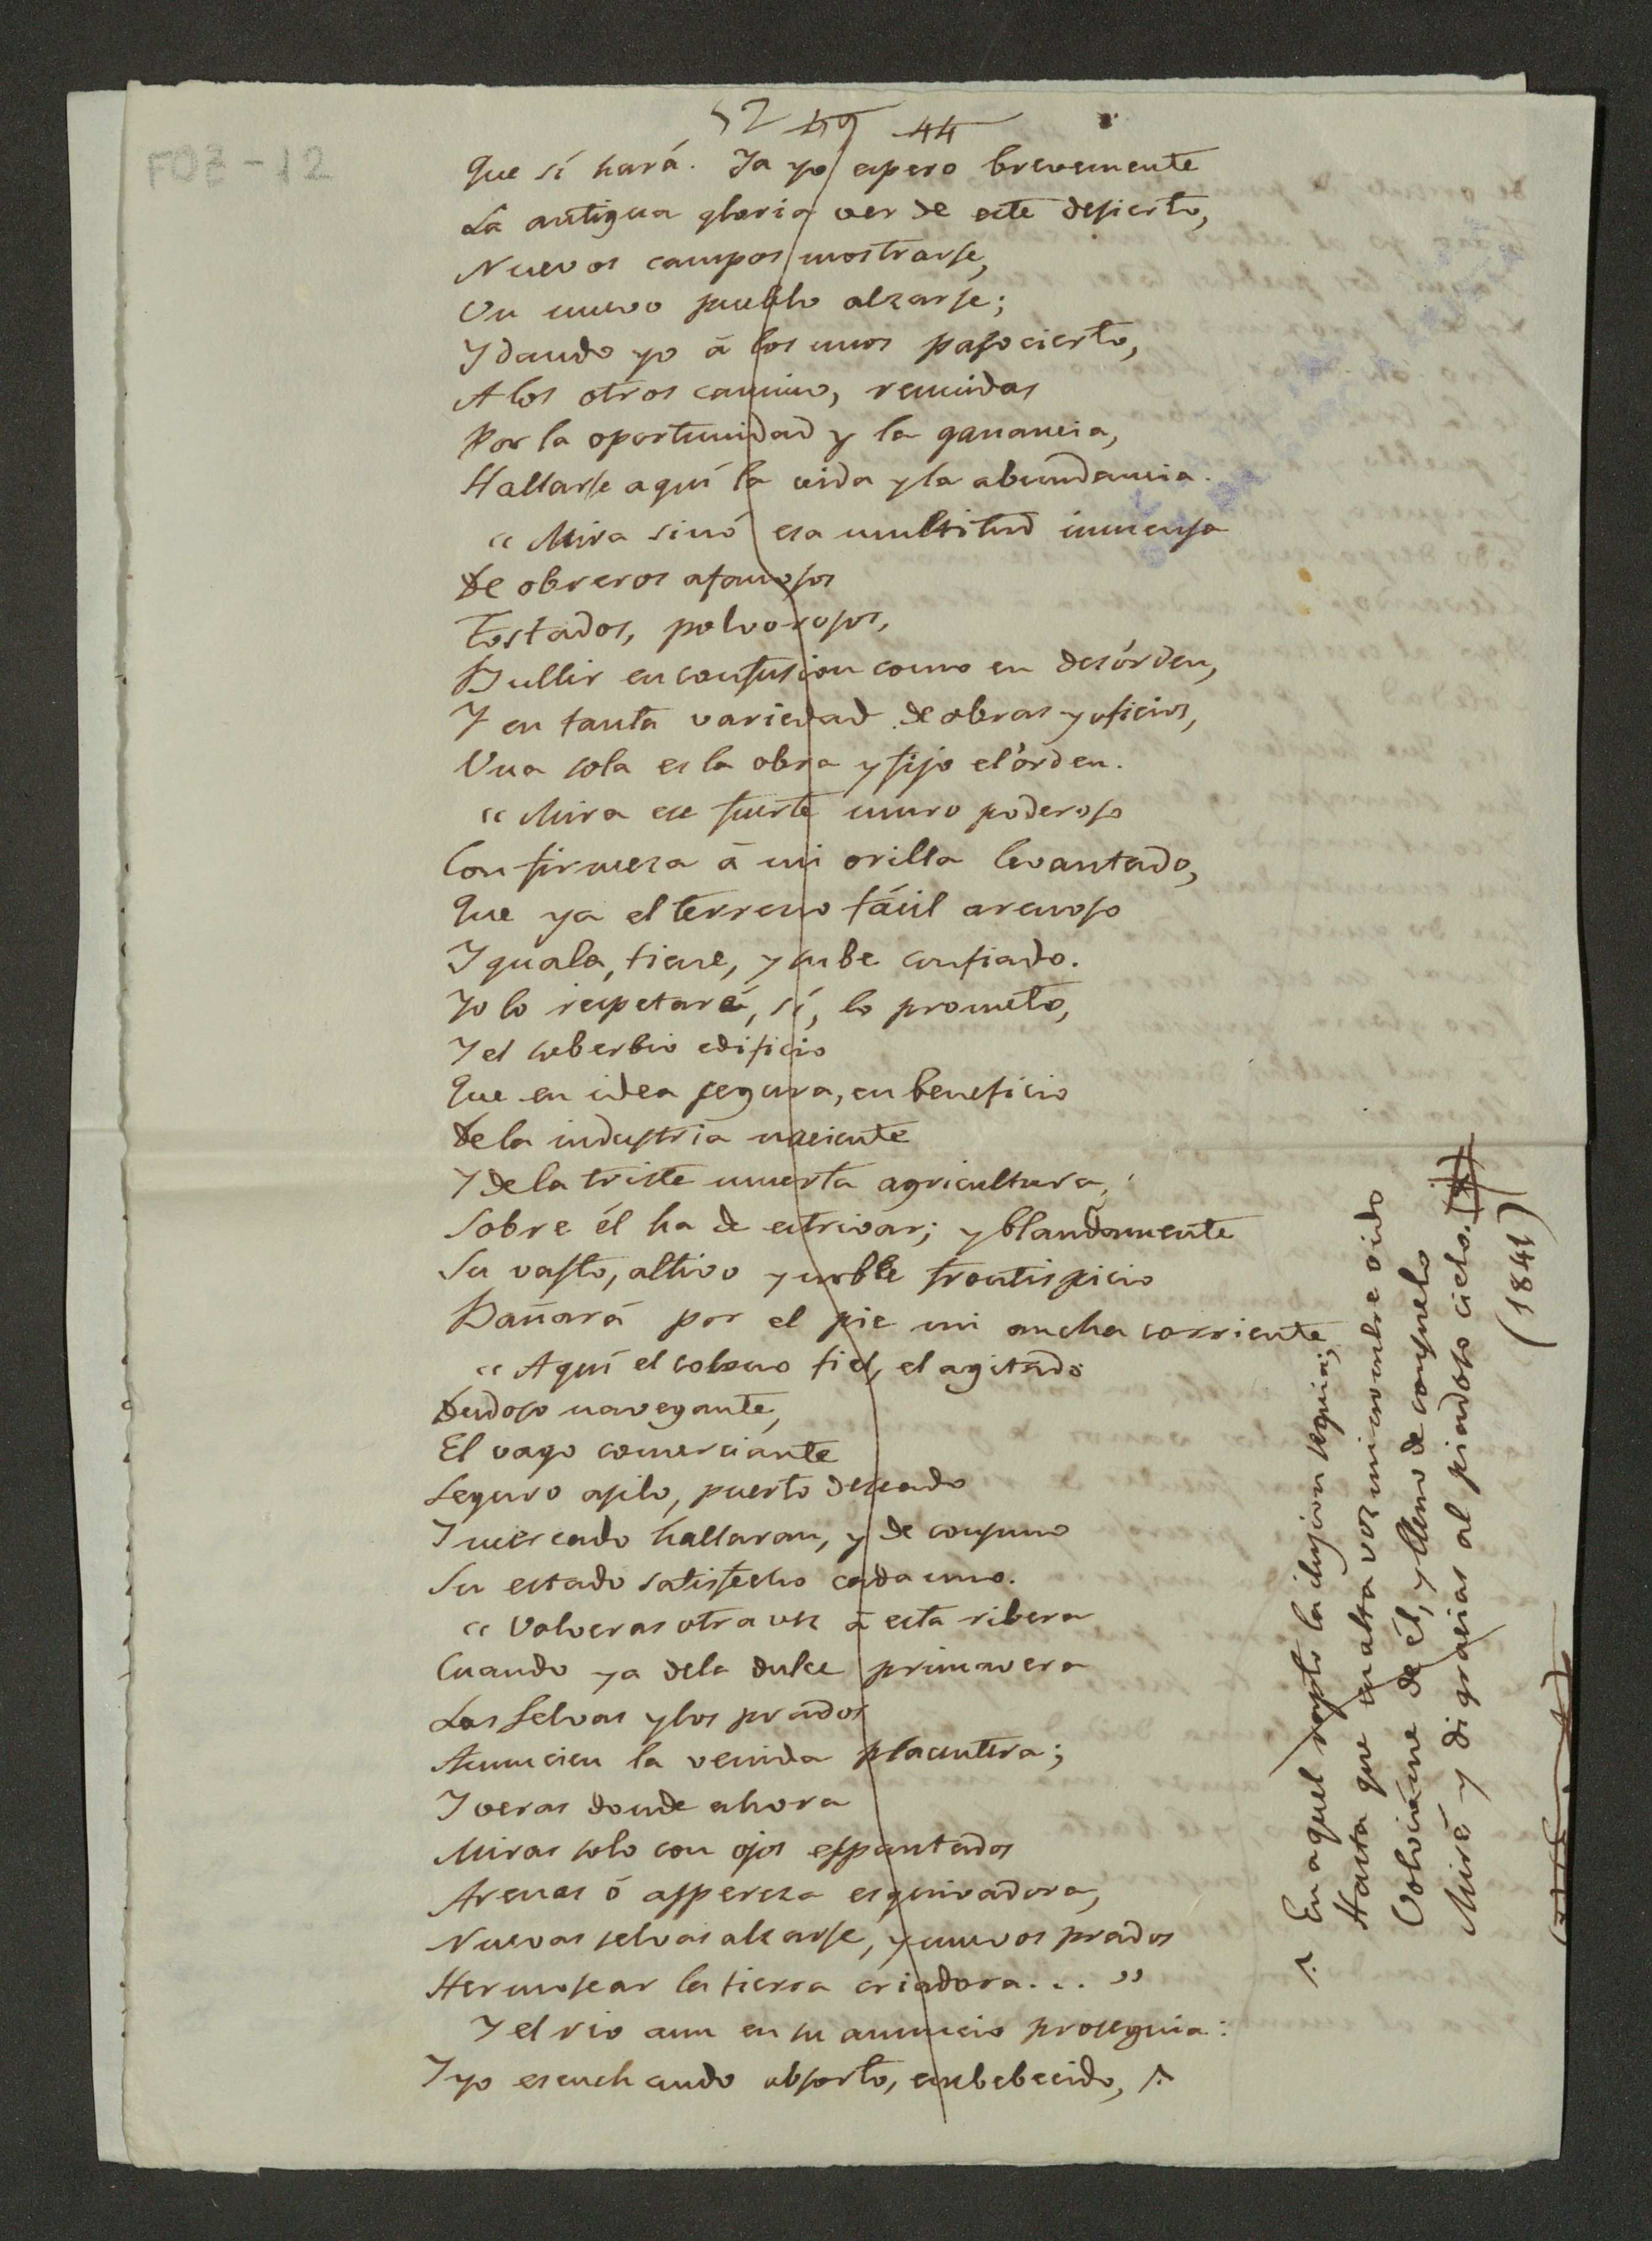 52 49 44
F03-12
Que sí hará. Ya yo espero brevemente
La antigua gloria ver de este desierto,
Nuevos campos mostrarse,
Un nuevo pueblo alzarse;
Y dando yo á los unos paso cierto,
A los otros camino, reunidas
Por la oportunidad y la ganancia,
Hallarse aquí la vida y la abundancia.
"Mira sinó esa multitud inmensa
De obreros afanosos
Tostados, polvorosos,
Bullir en confusion como en desórden,
Y en tanta variedad de obras y oficios,
Una sola es la obra y fijo el órden.
"Mira ese fuerte muro poderoso
Con firmeza á mi orilla levantado,
Que ya el terreno fácil arenoso
Iguala, tiene, y sube confiado.
Yo lo respetaré, sí, lo prometo,
Y el soberbio edificio
Que en idea segura, en beneficio
De la industria naciente
Y de la triste muerta agricultura,
Sobre él ha de estrivar; y blandamente
Su vasto, altivo y noble frontispicio
Bañará por el pie mi ancha corriente,
"Aquí el colono fiel, el agitado
Dudoso navegante,
El vago comerciante
Seguro asilo, puerto deseado
Y mercado hallaran, y de consuno
Su estado satisfecho cada uno.
"Volveras otra vez á esta ribera
Cuando ya dela dulce primavera
Las selvas y los prados
Anuncien la venida placentera;
Y veras donde ahora
Miras solo con ojos espantados
Arenas ó aspereza esquivadora,
Nuevas selvas alzarse, y nuevos prados
Hermosear la tierra criadora... "
Y el rio aun en su anuncio proseguia:
Y yo escuchando absorto, embebecido,
En aquel rapto la ilusion seguia;
Hasta que en alta voz mi nombre oido
Volviéme de él, y lleno de consuelo
Miré y di gracias al piadoso cielo.
(1841)